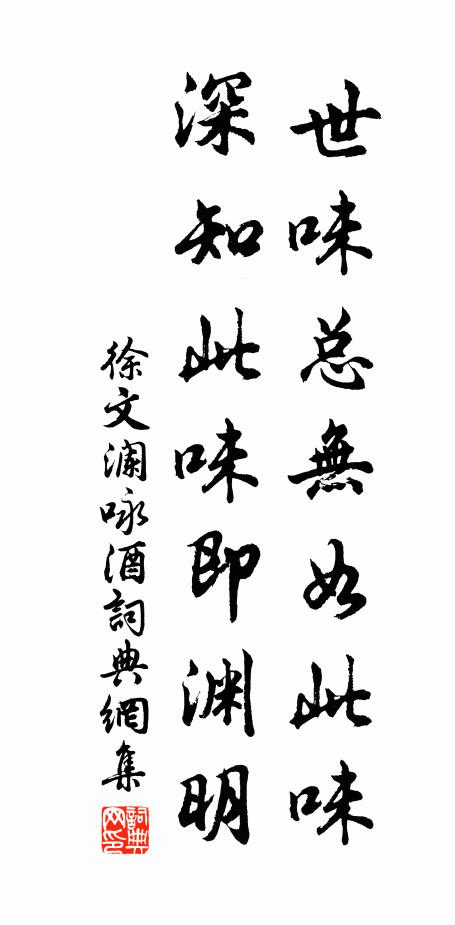 世味总無如此味
深知此味即渊明
徐文澜咏酒詞典網集
詞典网印